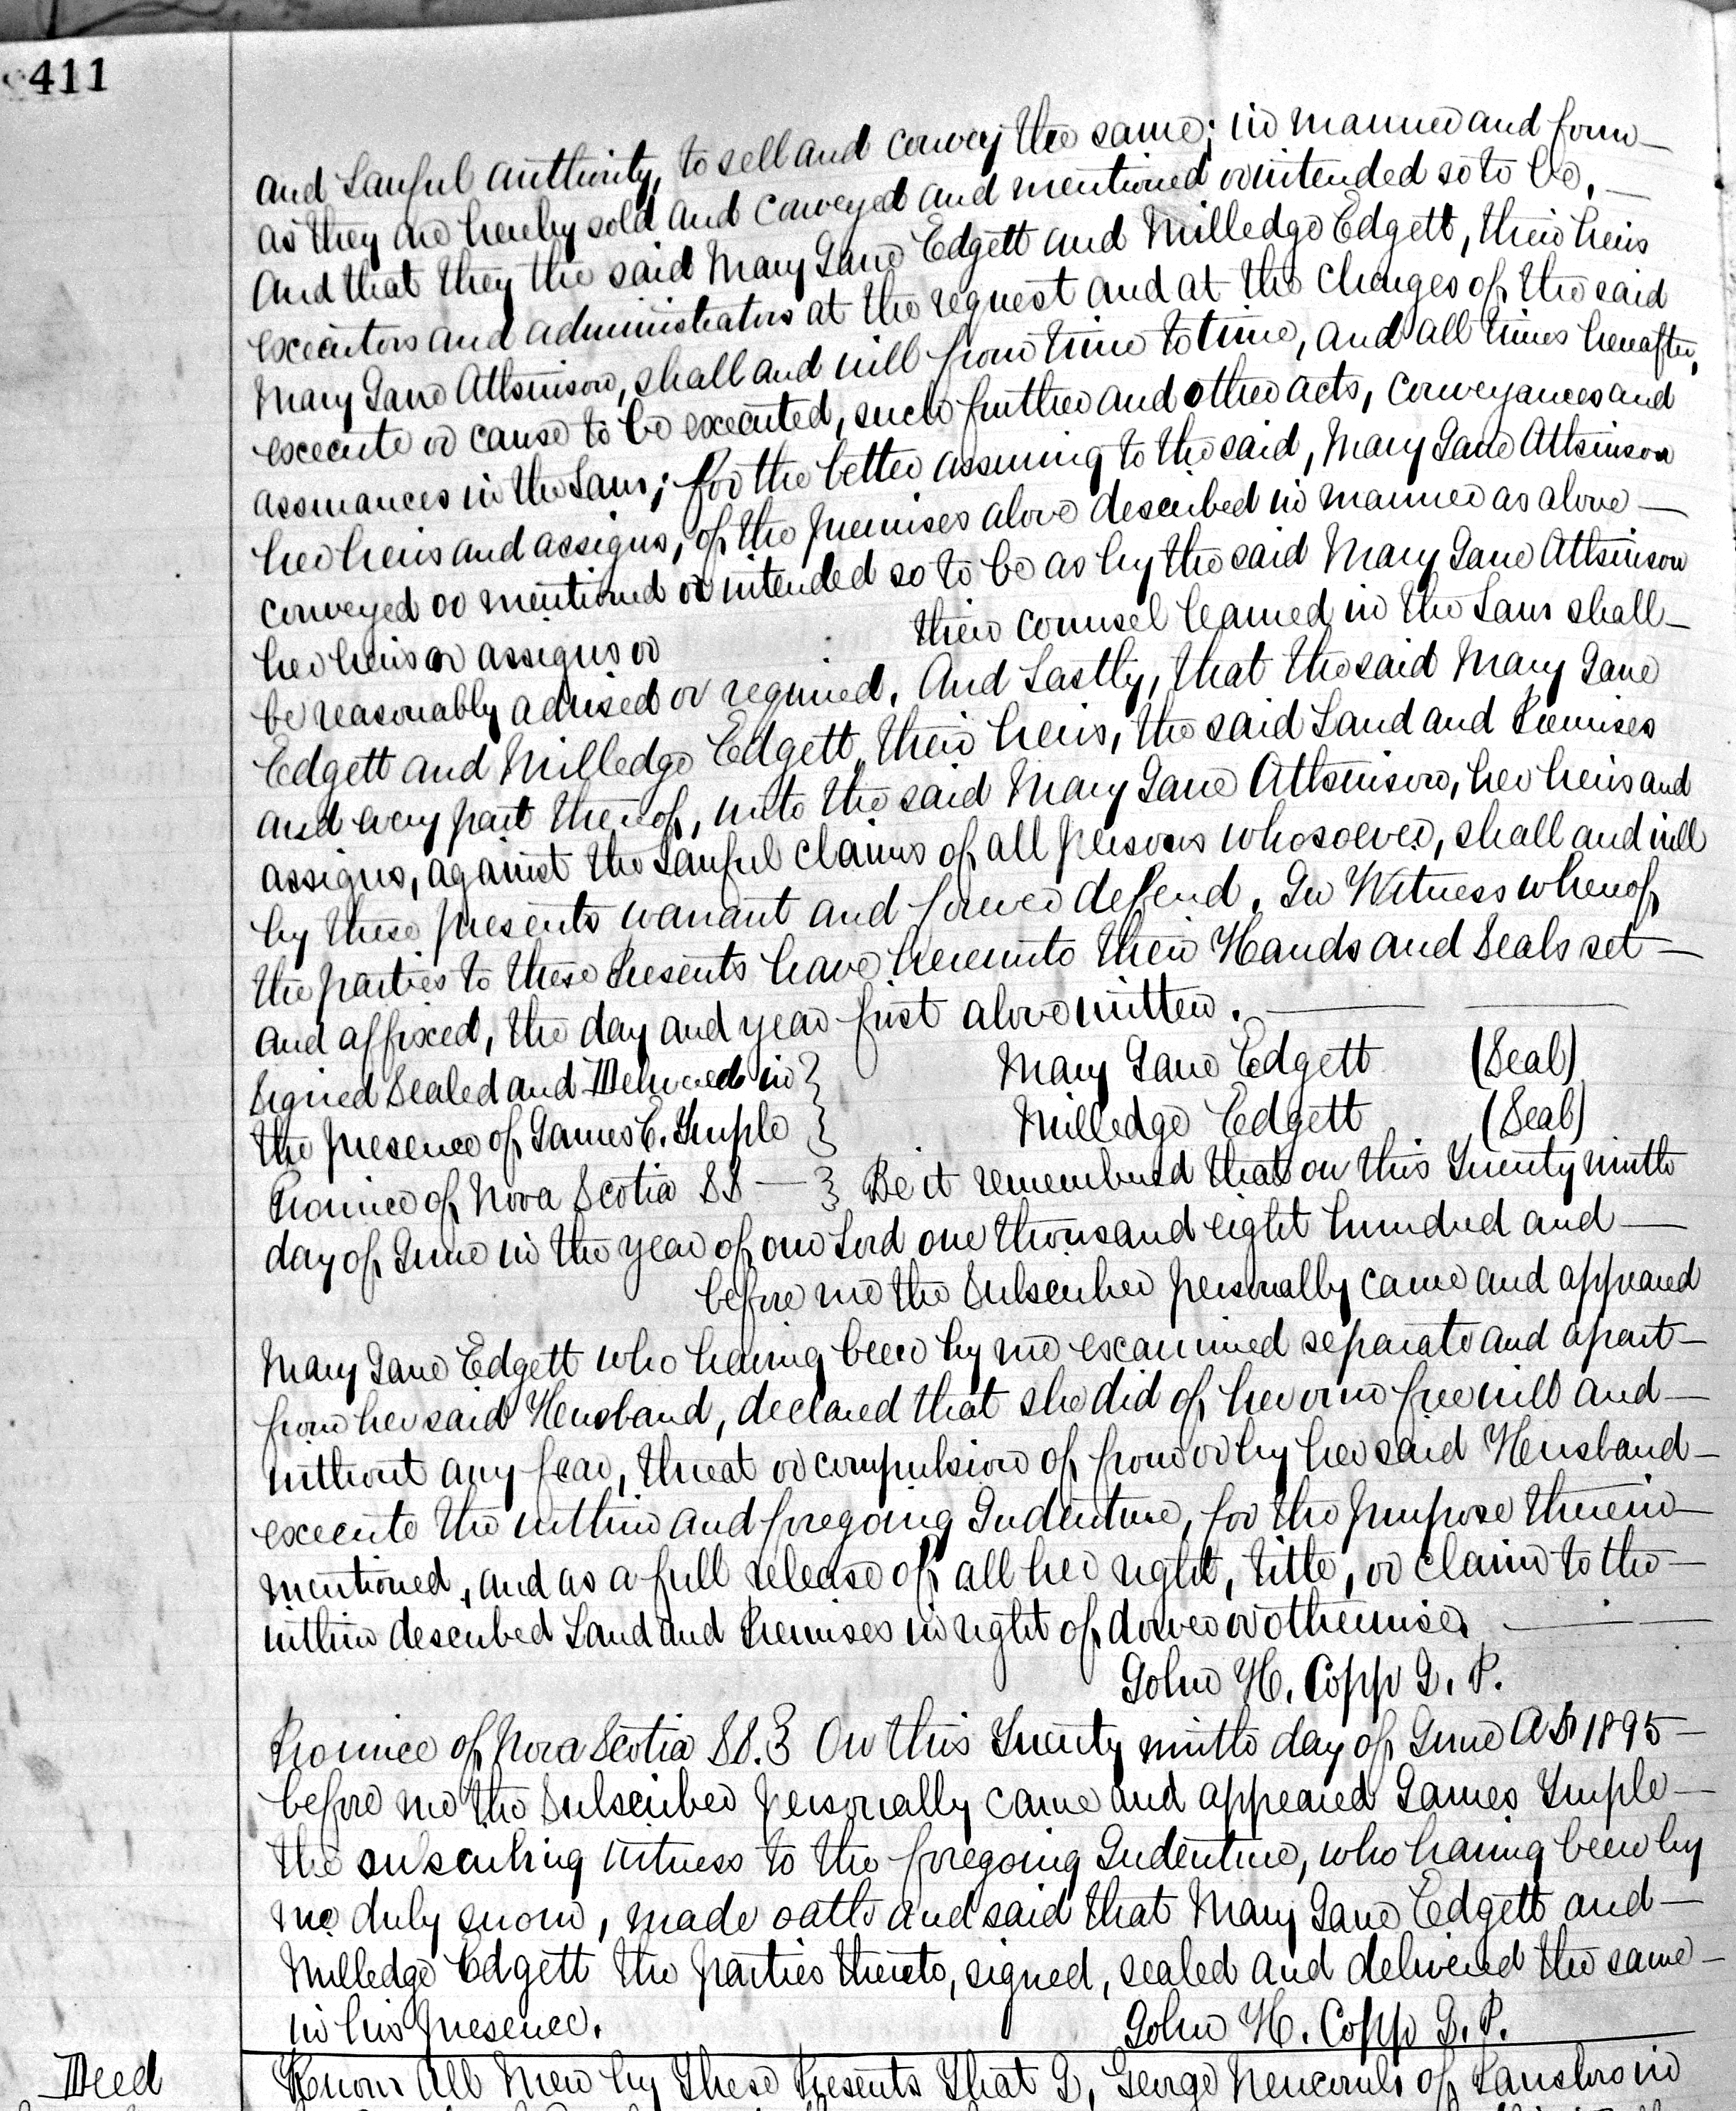 411
and Lawful authority, to sell and convey the same; in manner and form
as they are hereby sold and conveyed and mentioned or intended so to be,
And that they the said Mary Jane Edgett and Milledge Edgett, their heirs
executors and administrators at the request and at the charges of the said
Mary Jane Attkinson, shall and will from time to time, and all times hereafter,
execute or cause to be executed, such further and other acts, conveyances and
assurances in the Law; for the better assuring to the said, Mary Jane Attkinson
her heirs and assigns, of the premises above described in manner as above
conveyed or mentioned or intended so to be as by the said Mary Jane Attkinson
her heirs or assigns or their counsel learned in the Law shall
be reasonably advised or required. And Lastly, that the said Mary Jane
Edgett and Milledge Edgett, their heirs, the said Land and Premises
and every part thereof, unto the said Mary Jane Attkinson, her heirs and
assigns, against the Lawful claims of all persons whosoever, shall and will
by these presents warrant and forever defend. In Witness whereof
the parties to these Presents have hereunto their Hands and Seals set
and affixed, the day and year first above written.
Signed Sealed and Delivered in } Mary Jane Edgett (Seal)
the presence of James E. Temple } Milledge Edgett (Seal)
Province of Nova Scotia SS } Be it remembered that on this Twenty ninth
day of June in the year of our Lord one thousand eight hundred and
before me the Subscriber personally came and appeared
Mary Jane Edgett who having been by me examined separate and apart
from her said Husband, declared that she did of her own free will and
without any fear, threat or compulsion of from or by her said Husband
execute the within and foregoing Indenture, for the purpose therein
mentioned, and as a full release of all her right, title, or claim to the
within described Land and Premises in right of dower or otherwise.
John H. Copp J. P.
Province of Nova Scotia SS. } On this Twenty ninth day of June A D 1895
before me the Subscriber personally came and appeared James Temple
the subscribing witness to the foregoing Indenture, who having been by
me duly sworn, made oath and said that Mary Jane Edgett and
Milledge Edgett the parties thereto, signed, sealed and delivered the same
in his presence. John H. Copp J. P.
Deed Know All Men by These Presents That I, George Newcomb of Lansbro in